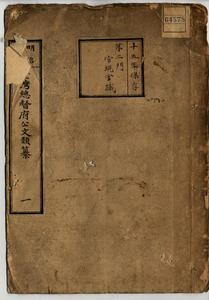 64578
十五年保存
第二門
官規官職
明治
台灣總督府公文類纂
一